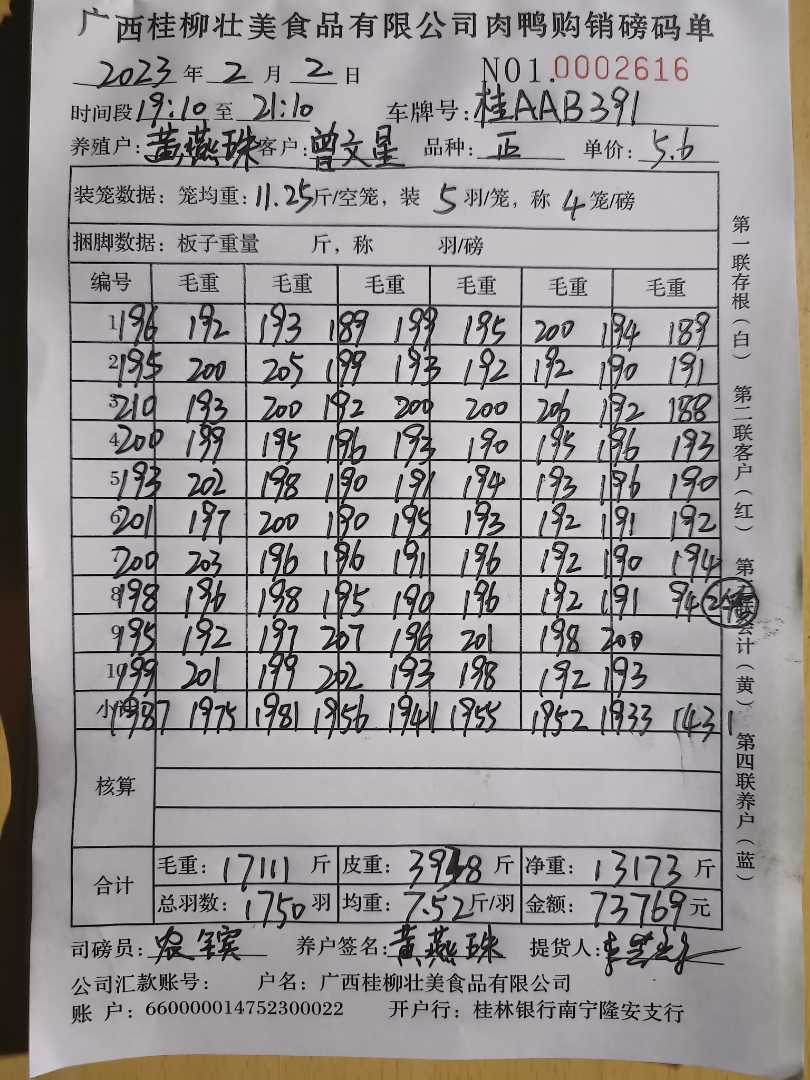 广西桂柳壮美食品有限公司肉鸭购销磅码单
2023 年 2 月 2 日 NO1.0002616
时间段 19:10 至 21:10 车牌号: 桂AAB391
养殖户: 黄燕珠 客户: 曾文星 品种: 正 单价: 5.6
装笼数据: 笼均重: 11.25 斤/空笼, 装 5 羽/笼, 称 4 笼/磅
捆脚数据: 板子重量 斤, 称 羽/磅
编号 毛重 毛重 毛重 毛重 毛重 毛重
1 196 192 193 189 199 195 200 194 189
2 195 200 205 199 193 192 192 190 191
3 210 193 200 192 200 200 206 192 188
4 200 199 195 196 193 190 195 196 193
5 193 202 198 190 191 194 193 196 190
6 201 197 200 190 195 193 192 191 192
7 200 203 196 196 191 196 192 190 194
8 198 196 198 195 190 196 192 191 94
9 195 192 197 207 196 201 198 200
10 199 201 199 202 193 198 192 193
小计 1987 1975 1981 1956 1941 1955 1952 1933 1431
核算
合计 毛重: 17111 斤 皮重: 3938 斤 净重: 13173 斤
总羽数: 1750 羽 均重: 7.52 斤/羽 金额: 73769 元
司磅员: 养户签名: 黄燕珠 提货人:
公司汇款账号: 户名: 广西桂柳壮美食品有限公司
账 户: 660000014752300022 开户行: 桂林银行南宁隆安支行
第一联存根(白) 第二联客户(红) 第三联会计(黄) 第四联养户(蓝)